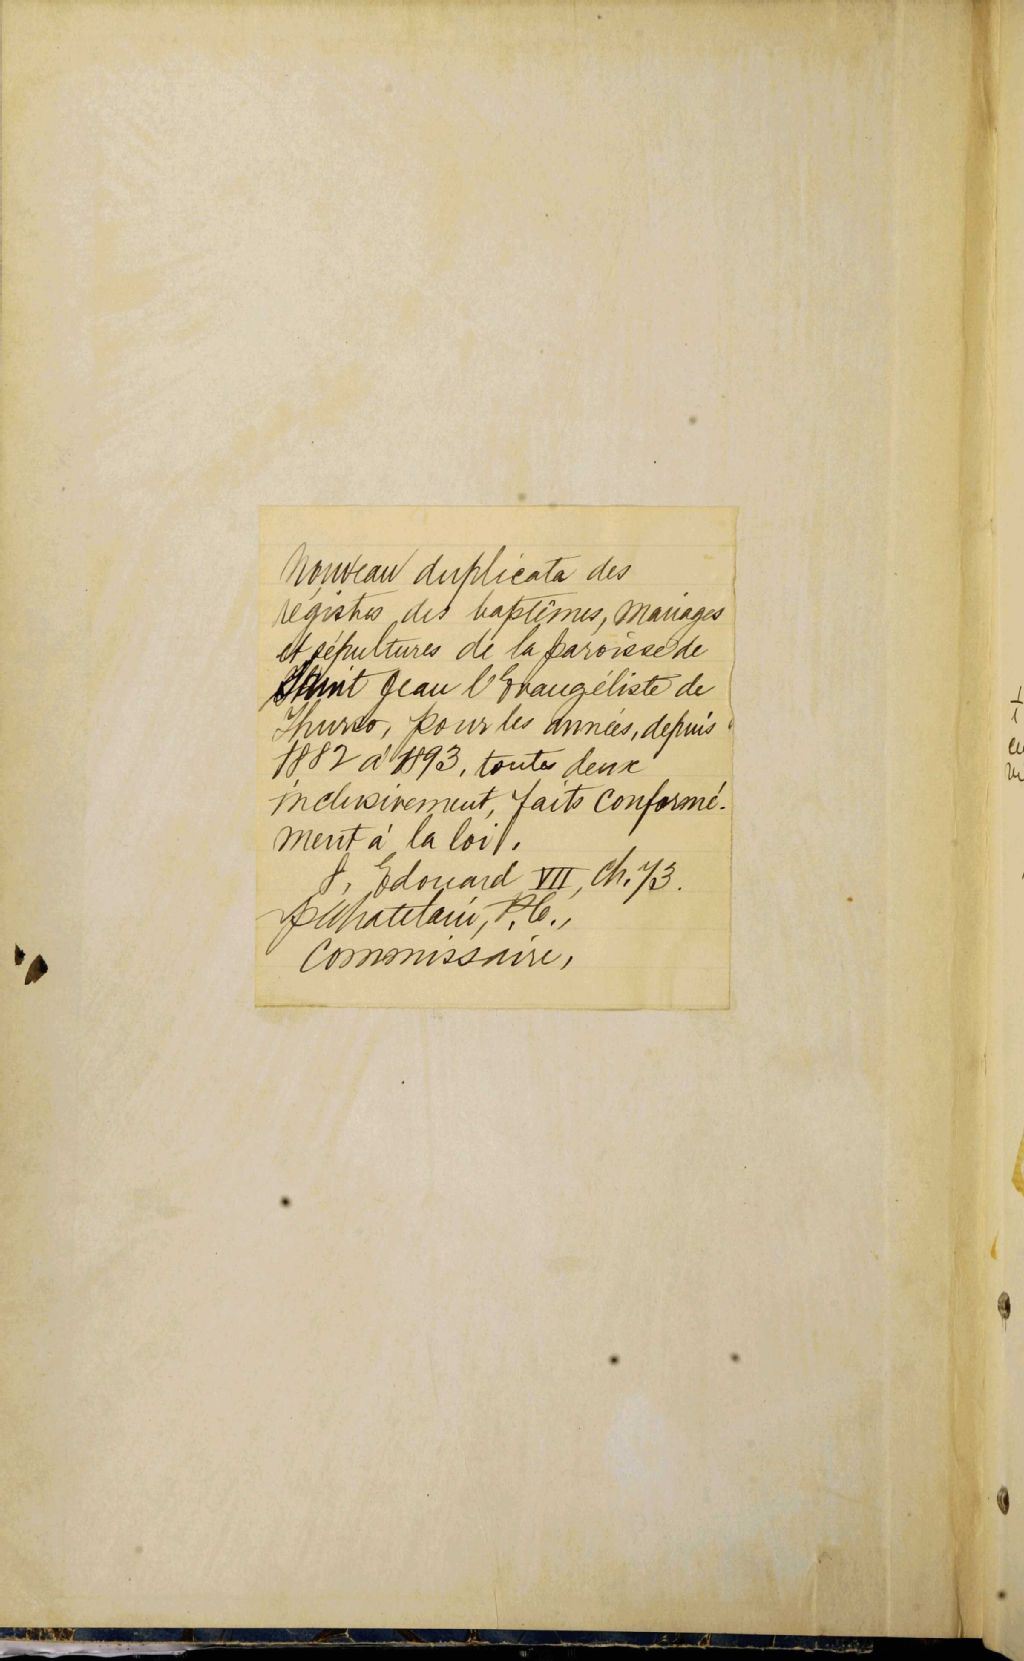 Nouveau duplicata des
régistres des baptêmes, mariages
et sépultures de la paroisse de
Saint Jean l'Evangéliste de
Thurso, pour les années, depuis
1882 à 1893, toutes deux
inclusivement, faits conformé-
ment à la loi.
8, Edouard VII, Ch. 73.
Chatelain, P.C.,
Commissaire,